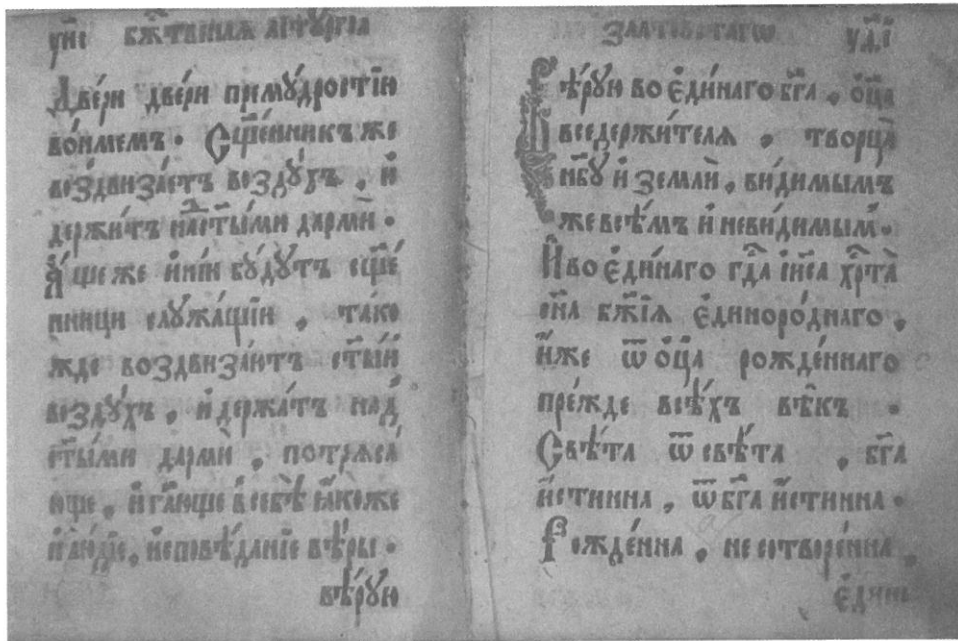 бж҃твеннаѧ лїтꙋргїа
Двери двери премꙋ́дростїю
во́нмемъ. Сщ҃е́нникъ же
воздвиза́етъ во́здꙋхъ, и҆
держи́тъ над̾ ст҃ы́ми дарми̑.
А҆́ще же и҆ні́и бꙋ́дꙋтъ сщ҃е́
нницы слꙋжа́щїи, тако
жде воздвиза́ютъ ст҃ы́й
во́здꙋхъ, и҆ держа́тъ над̾
ст҃ы́ми дарми̑, потрѧса́
юще, и҆ гл҃юще в̾себѣ̀ ꙗ҆́коже
и҆ лю́дїе, и҆сповѣ́данїе вѣ́ры.
вѣ́рꙋю
златоꙋстагѡ
Вѣ́рꙋю во є҆ди́наго бг҃а, ѻ҆ц҃а̀
вседержи́телѧ, творца̀
нб҃ꙋ̀ и҆ землѝ, ви́димымъ
же всѣ́мъ и҆ неви́димымъ.
И҆ во є҆ди́наго гд҇а і҆и҃са хр҇та̀
сн҃а бж҃їѧ є҆диноро́днаго,
и҆́же ѿ ѻ҆ц҃а̀ рожде́ннаго
пре́жде всѣ́хъ вѣ̑къ.
Свѣ́та ѿ свѣ́та, бг҃а
и҆́стинна, ѿ бг҃а и҆́стинна.
Рожде́нна, не сотворе́нна,
є҆дино